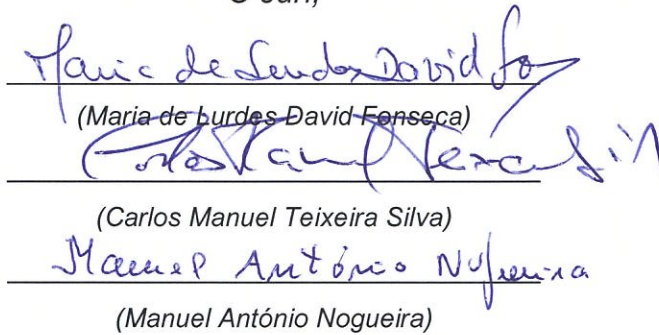 O Júri,
Maria de Lurdes David Fon
(Maria de Lurdes David Fonseca)
Carlos Manuel Teixeira Silv
(Carlos Manuel Teixeira Silva)
Manuel António Nogueira
(Manuel António Nogueira)